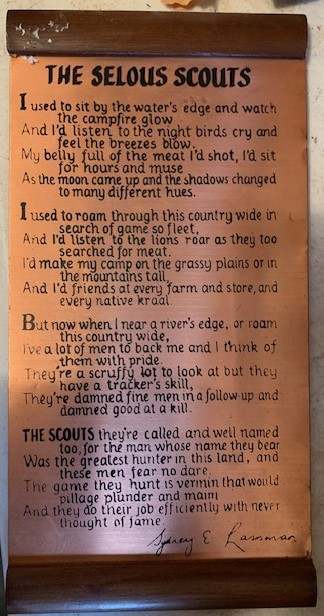 THE SELOUS SCOUTS
I used to sit by the water's edge and watch
the campfire glow,
And I'd listen to the night birds cry and
feel the breezes blow.
My belly full of the meat I'd shot, I'd sit
for hours and muse
As the moon came up and the shadows changed
to many different hues.
I used to roam through this country wide in
search of game so fleet,
And I'd listen to the lions roar as they too
searched for meat.
I'd make my camp on the grassy plains or in
the mountains tall,
And I'd friends at every farm and store, and
every native kraal.
But now when I near a river's edge, or roam
this country wide,
I've a lot of men to back me and I think of
them with pride.
They're a scruffy lot to look at but they
have a tracker's skill,
They're damned fine men in a follow-up and
damned good at a kill.
THE SCOUTS they're called and well named
too, for the man whose name they bear
Was the greatest hunter in this land, and
these men fear no dare.
The game they hunt is vermin that would
pillage plunder and maim
And they do their job efficiently with never
thought of fame.
Sydney E